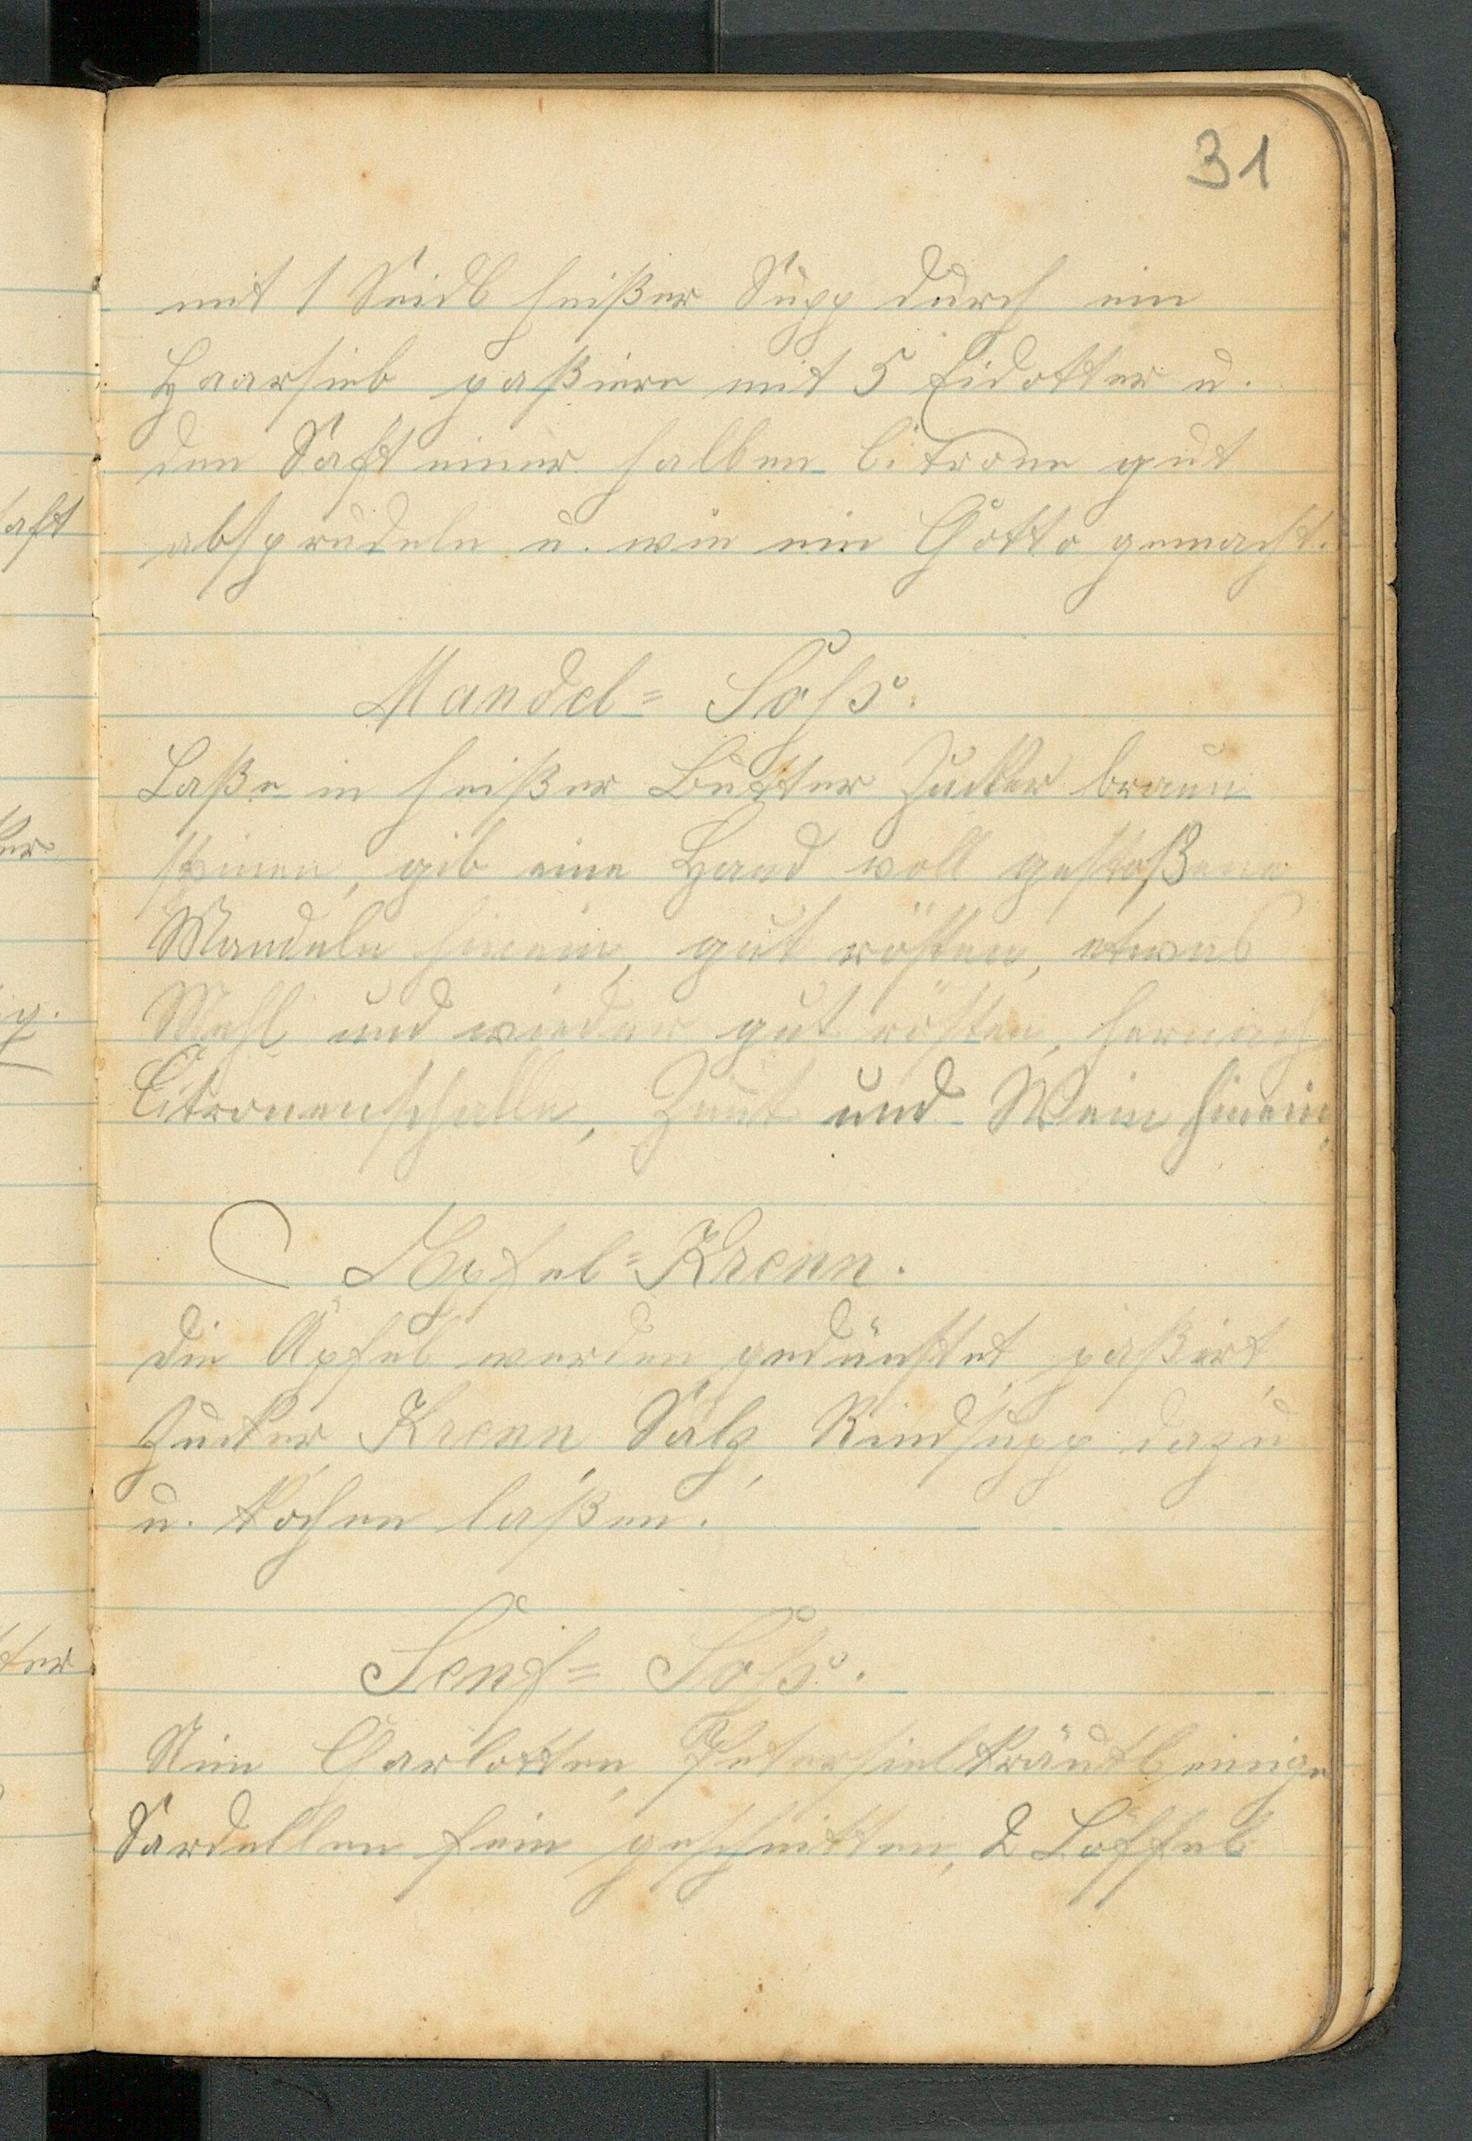 31
mit 1 Seidl heißer Supp durch ein
Haarsieb paßiere mit 5 Eidotter u.
den Saft einer halben Citrone gut
absprudeln u. wie ein Chotto gemacht.
Mandel= Soß.
Laße in heißer Butter Zucker braun
spinen, gib eine Hand voll gestoßene
Mandeln hinein, gut rösten, etwas
Mehl und wieder gut rösten, hernach
Citronenschalle, Zimt und Wein hinein.
Apfel=Krenn.
die Äpfel werden gedünstet, paßirt,
Zucker, Krenn, Salz, Rindsupp dazu
u. kochen laßen.
Senf= Soß.
Nim Charlotten, Petersielkräutl, einige
Sardellen fein geschnitten, 2 Löffel
aft
ter